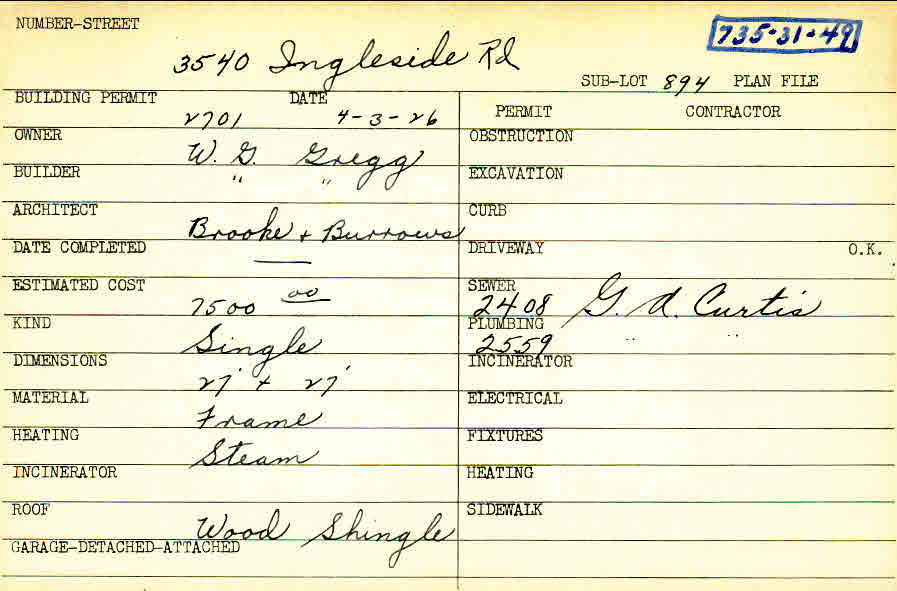 NUMBER-STREET
735-31-49
3540 Ingleside Rd
SUB-LOT 894 PLAN FILE
BUILDING PERMIT DATE
2701 4-3-26
PERMIT CONTRACTOR
OWNER
W. G. Gregg
OBSTRUCTION
BUILDER
" "
EXCAVATION
ARCHITECT
Brooke + Burrows
CURB
DATE COMPLETED
—
DRIVEWAY O.K.
ESTIMATED COST
7500 00
SEWER
2408 G. A. Curtis
KIND
Single
PLUMBING
2559 " "
DIMENSIONS
27' + 27'
INCINERATOR
MATERIAL
Frame
ELECTRICAL
HEATING
Steam
FIXTURES
INCINERATOR
HEATING
ROOF
Wood Shingle
SIDEWALK
GARAGE-DETACHED-ATTACHED